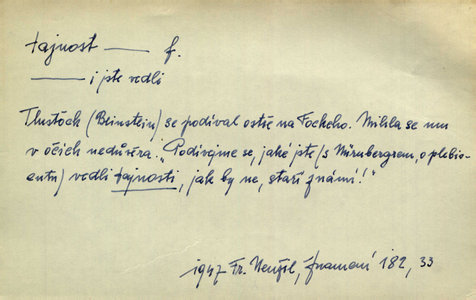 tajnost —— f.
—— i jste vedli
Tlusťoch (Beinstein) se podíval ostře na Fockeho. Mihla se mu
v očích nedůvěra. „Podívejme se, jaké jste (s Nürnbergrem, o plebis-
cntu) vedli tajnosti, jak by ne, staří známí!"
1947 Fr. Neužil, Znamení 182, 33